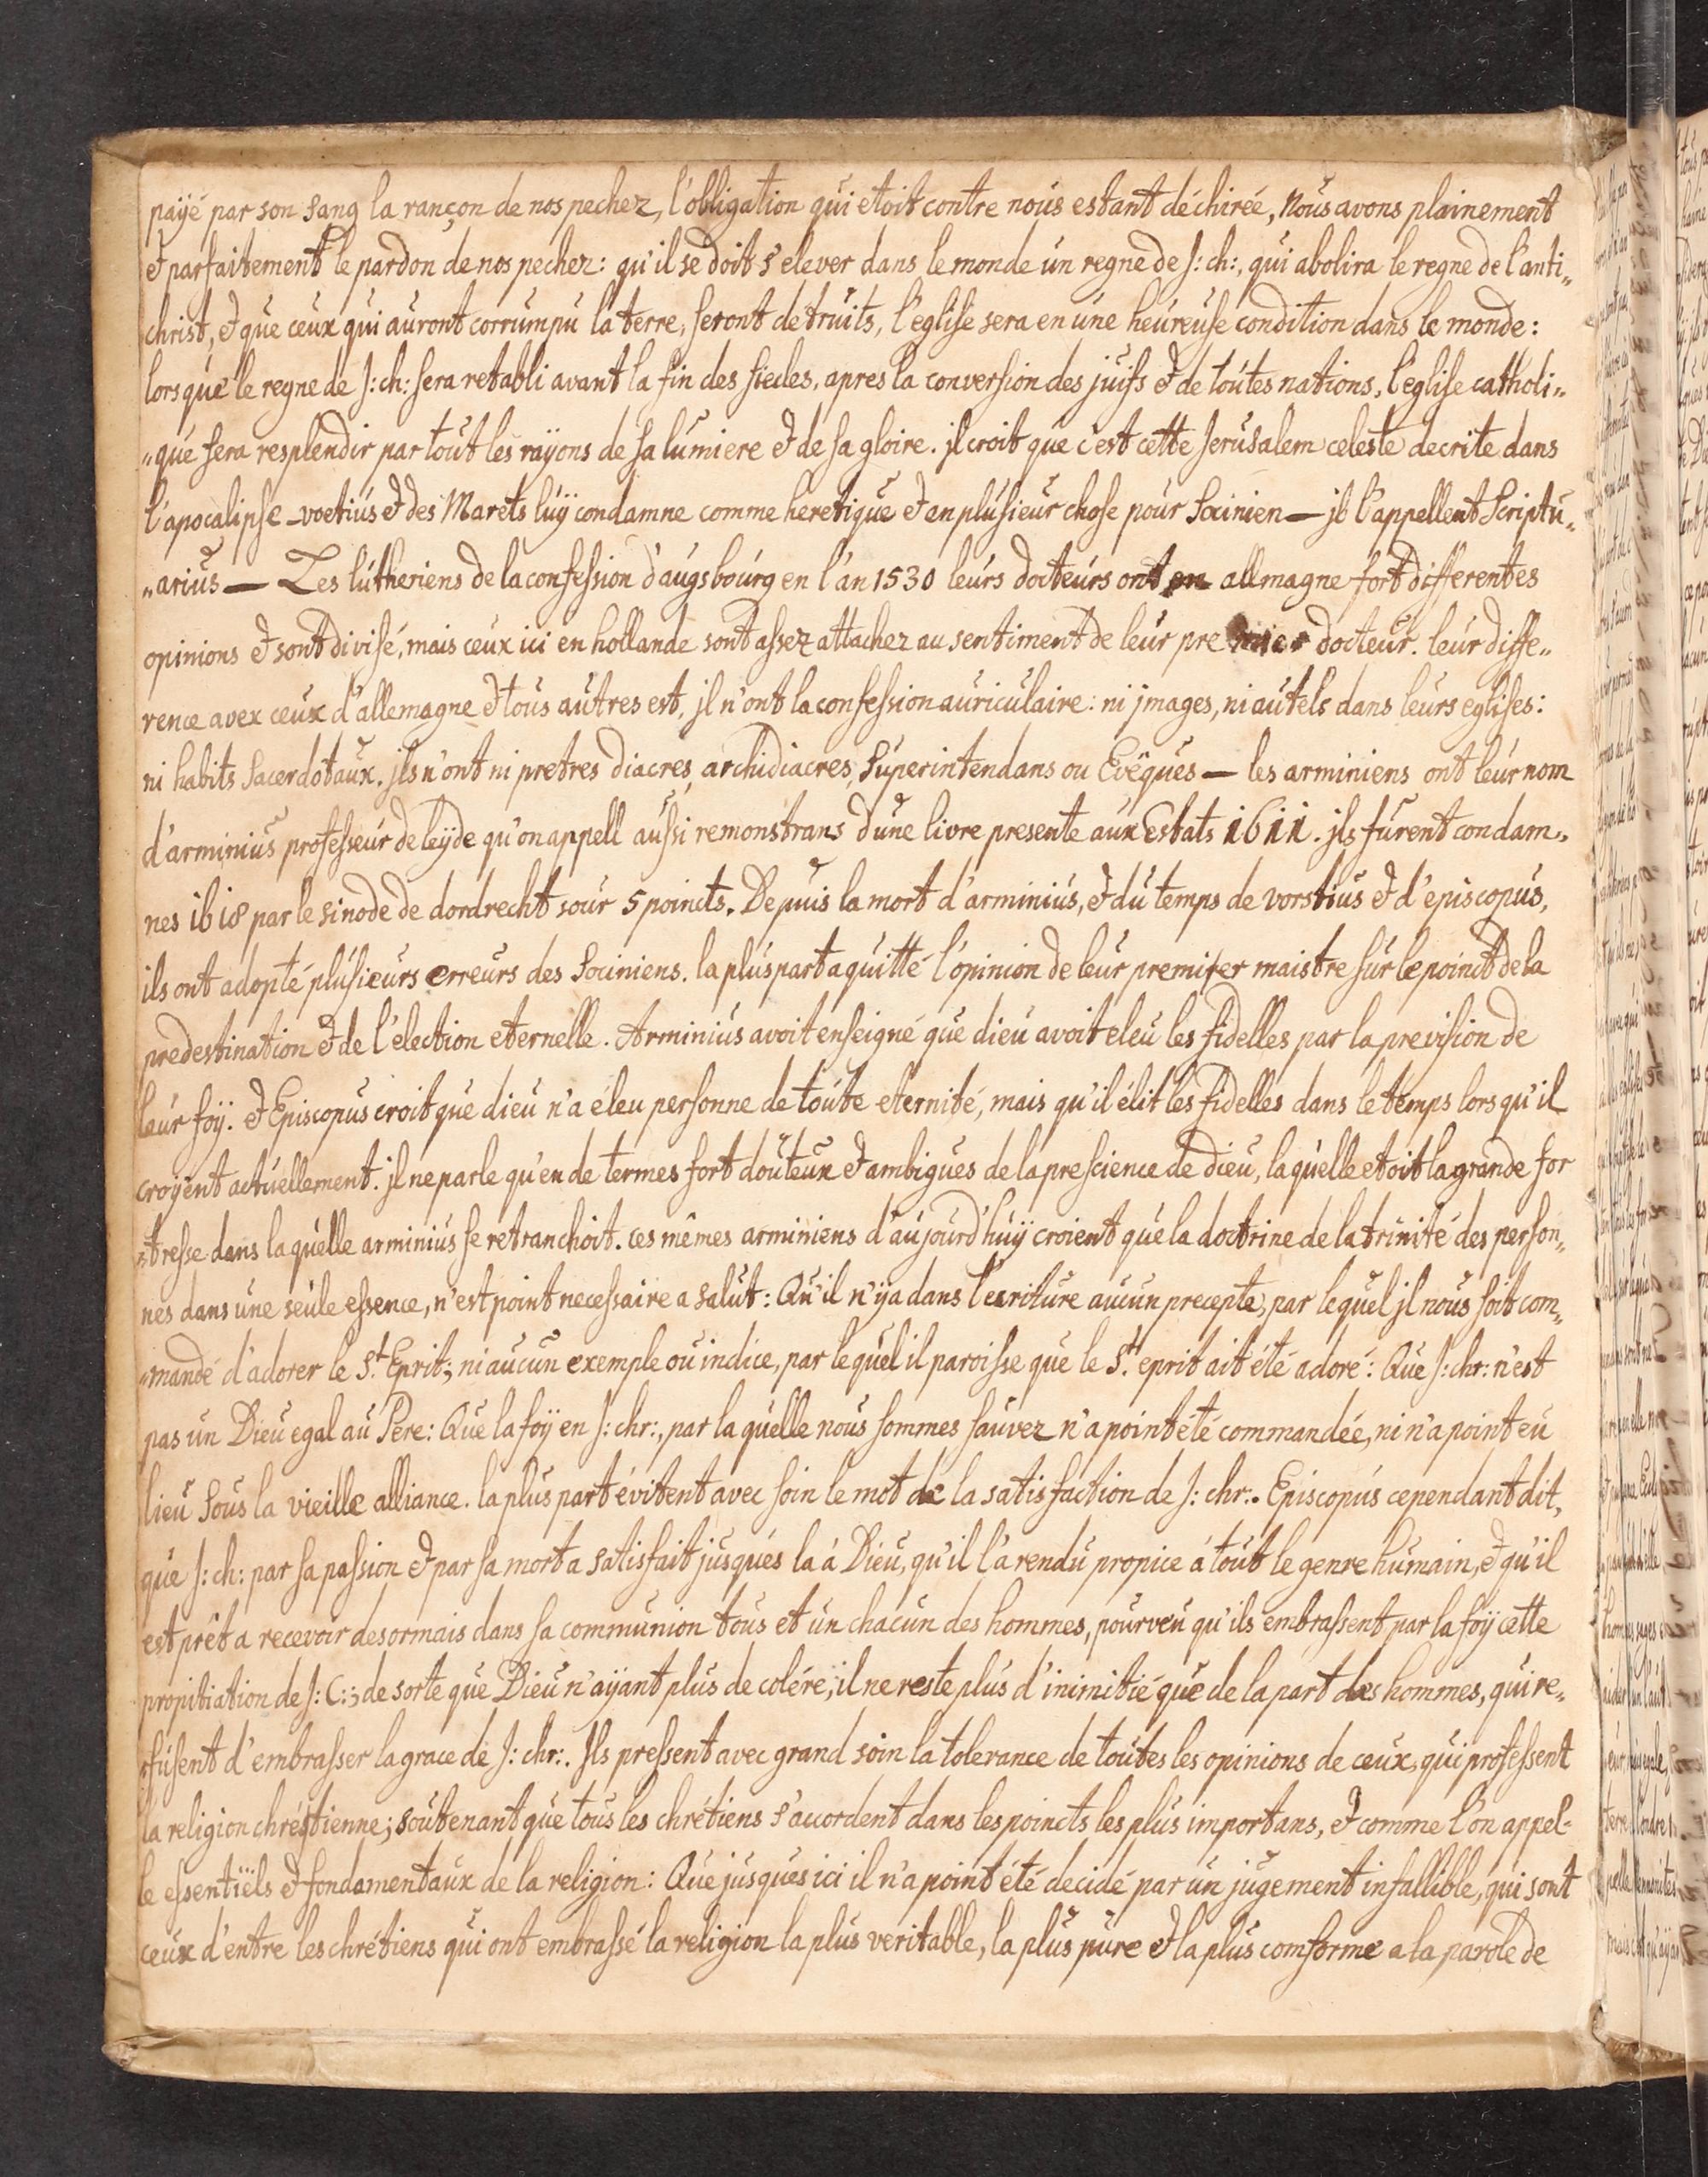 payé par son sang la rançon de nos pechez, l'obligation qui etoit contre nous estant déchirée, Nous avons plainement
et parfaitement le pardon de nos pechez: qu'il se doit s'elever dans le monde un regne de J: ch:, qui abolira le regne de l'anti„
christ, et que ceux qui auront corrumpu la terre, seront détruits, l'eglise sera en une heureuse condition dans le monde:
lorsque le regne de J: ch: sera retabli avant la fin des siecles, apres la conversion des juifs et de toutes nations, l'eglise catholi„
„que fera resplendir par tout les rayons de sa lumiere et de sa gloire. jl croit que c'est cette Jerusalem celeste decrite dans
l'apocalipse _ voetius et des Marets luÿ condamne comme heretique et en plusieur chose pour Socinien — jl l'appellent Scriptu„
„arius — Les lutheriens de la confession d'augsbourg en l'an 1530 leurs docteurs ont en allmagne fort differentes
opinions et sont divisé, mais ceux ici en hollande sont assez attachez au sentiment de leur premier docteur. leur diffe„
rence avex ceux d'allemagne et tous autres est, jl n'ont la confession auriculaire: ni jmages, ni autels dans leurs eglises:
ni habits sacerdotaux. jls n'ont ni pretres diacres, archidiacres, Superintendans ou Evëques — les arminiens ont leur nom
d'arminius professeur de leÿde qu'on appell aussi remonstrans d'une livre presente aux Estats 1611. jls furent condam„
nes 1618 par le sinode de dordrecht sour 5 poincts. Depuis la mort d'arminius, et du temps de vorstius et d'episcopus,
ils ont adopté plusieurs erreurs des Sociniens. la pluspart a quitté l'opinion de leur premiter maistre sur le poinct de la
predestination et de l'election eternelle. Arminius avoit enseigné que dieu avoit eleu les fidelles par la prevision de
leur foÿ. et Episcopus croit que dieu n'a éleu personne de toute eternité, mais qu'il élit les fidelles dans le temps lors qu'il
croÿent actuellement. jl ne parle qu'en de termes fort douteux et ambigues de la prescience de dieu, laquelle etoit la grande for
„tresse dans laquelle arminius se retranchoit. ces mêmes arminiens d'aujourd'huÿ croient que la doctrine de la trinité des person„
nes dans une seule essence, n'est point necessaire a salut: Qu'il n'ÿ a dans l'ecriture aucun precepte, par lequel jl nous soit com„
„mandé d'adorer le St. Eprit; ni aucun exemple ou indice, par lequel il paroisse que le St. eprit ait été adoré: Que J: chr: n'est
pas un Dieu egal au Pere: Que la foÿ en J: chr:, par laquelle nous sommes sauvez n'a point été commandée, ni n'a point eu
lieu sous la vieille alliance. la plus part évitent avec soin le mot de la satisfaction de J: chr:. Episcopus cependant dit,
que J: ch: par sa passion et par sa mort a satisfait jusques la á Dieu, qu'il l'a rendu propice á tout le genre humain, et qu'il
est prêt a recevoir desormais dans sa communion tous et un chacun des hommes, pourveu qu'ils embrassent par la foÿ cette
propitiation de J: C:; de sorte que Dieu n'aÿant plus de colére, il ne reste plus d'inimitié que de la part des hommes, qui re„
„fusent d'embrasser la grace de J: chr:. Jls pressent avec grand soin la tolerance de toutes les opinions de ceux, qui professent
la religion chréstienne; soutenant que tous les chrétiens s'accordent dans les poincts les plus importans, et comme l'on appel-
le essentiëls et fondamentaux de la religion: Que jusques ici il n'a point été decidé par un jugement infallible, qui sont
ceux d'entre les chrétiens qui ont embrassé la religion la plus veritable, la plus pure et la plus comforme a la parole de